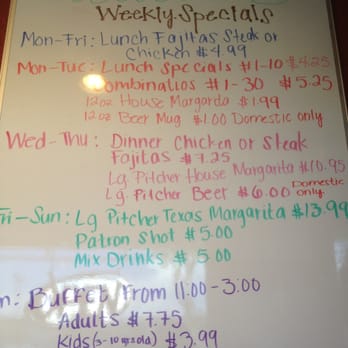 Weekly Specials
Mon-Fri: Lunch Fajitas Steak or
Chicken $4.99
Mon-Tue: Lunch Specials #1-10 $4.25
Combinatios #1-30 $5.25
12oz House Margarita $1.99
12oz Beer Mug $1.00 Domestic only
Wed-Thu: Dinner Chicken or Steak
Fajitas $7.25
Lg Pitcher House Margarita $10.95
Lg. Pitcher Beer $6.00 Domestic only
Fri-Sun: Lg Pitcher Texas Margarita $13.99
Patron Shot $5.00
Mix Drinks $5.00
n: Buffet From 11:00-3:00
Adults $7.75
Kids (3-10 yrs old) $3.99